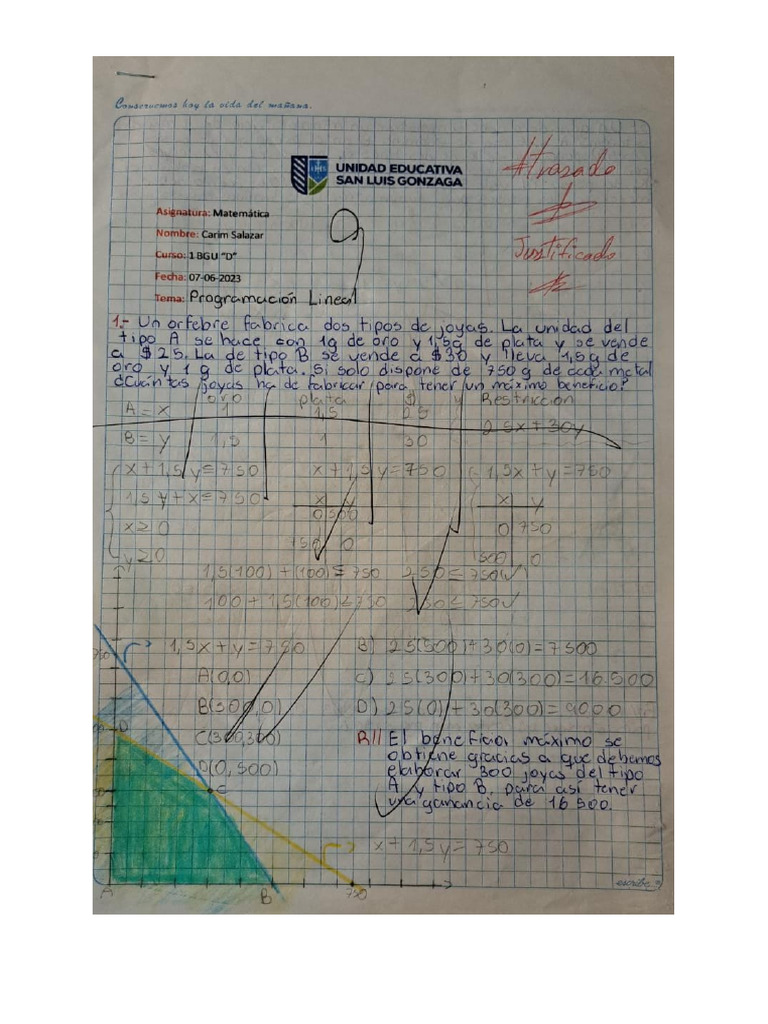 Conservemos hoy la vida del mañana.
UNIDAD EDUCATIVA
SAN LUIS GONZAGA
Atrasado
Justificado
Asignatura: Matemática
Nombre: Carim Salazar
Curso: 1 BGU "D"
Fecha: 07-06-2023
Tema: Programación Lineal
9
1.- Un orfebre fabrica dos tipos de joyas. La unidad del
tipo A se hace con 1g de oro y 1,5g de plata y se vende
a $25. La de tipo B se vende a $30 y lleva 1,5g de
oro y 1g de plata. Si solo dispone de 750 g de cada metal
¿Cuántas joyas ha de fabricar para tener un máximo beneficio?
oro plata $ Restricción
A = x 1 1,5 25 25x + 30y
B = y 1,5 1 30
x + 1,5y ≤ 750 x + 1,5y = 750 1,5x + y = 750
1,5y + x ≤ 750 x y x y
x ≥ 0 0 500 0 750
y ≥ 0 750 0 500 0
1,5(100) + (100) ≤ 750 250 ≤ 750 ✓
100 + 1,5(100) ≤ 750 250 ≤ 750 ✓
1,5x + y = 750 B) 25(500) + 30(0) = 7500
A(0,0) C) 25(300) + 30(300) = 16.500
B(500,0) D) 25(0) + 30(300) = 9000
C(300,300) R// El beneficio máximo se
D(0,500) obtiene gracias a que debemos
elaborar 300 joyas del tipo
A y tipo B, para así tener
una ganancia de 16 500.
x + 1,5y = 750
D
C
A B 750
escribe